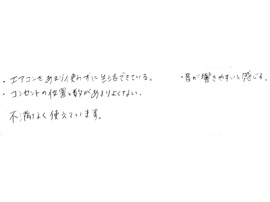 ・エアコンをあまり使わずに生活できている。
・コンセントの位置と数があまりよくない。
不満なく使えています。
・音が響きやすいと感じる。